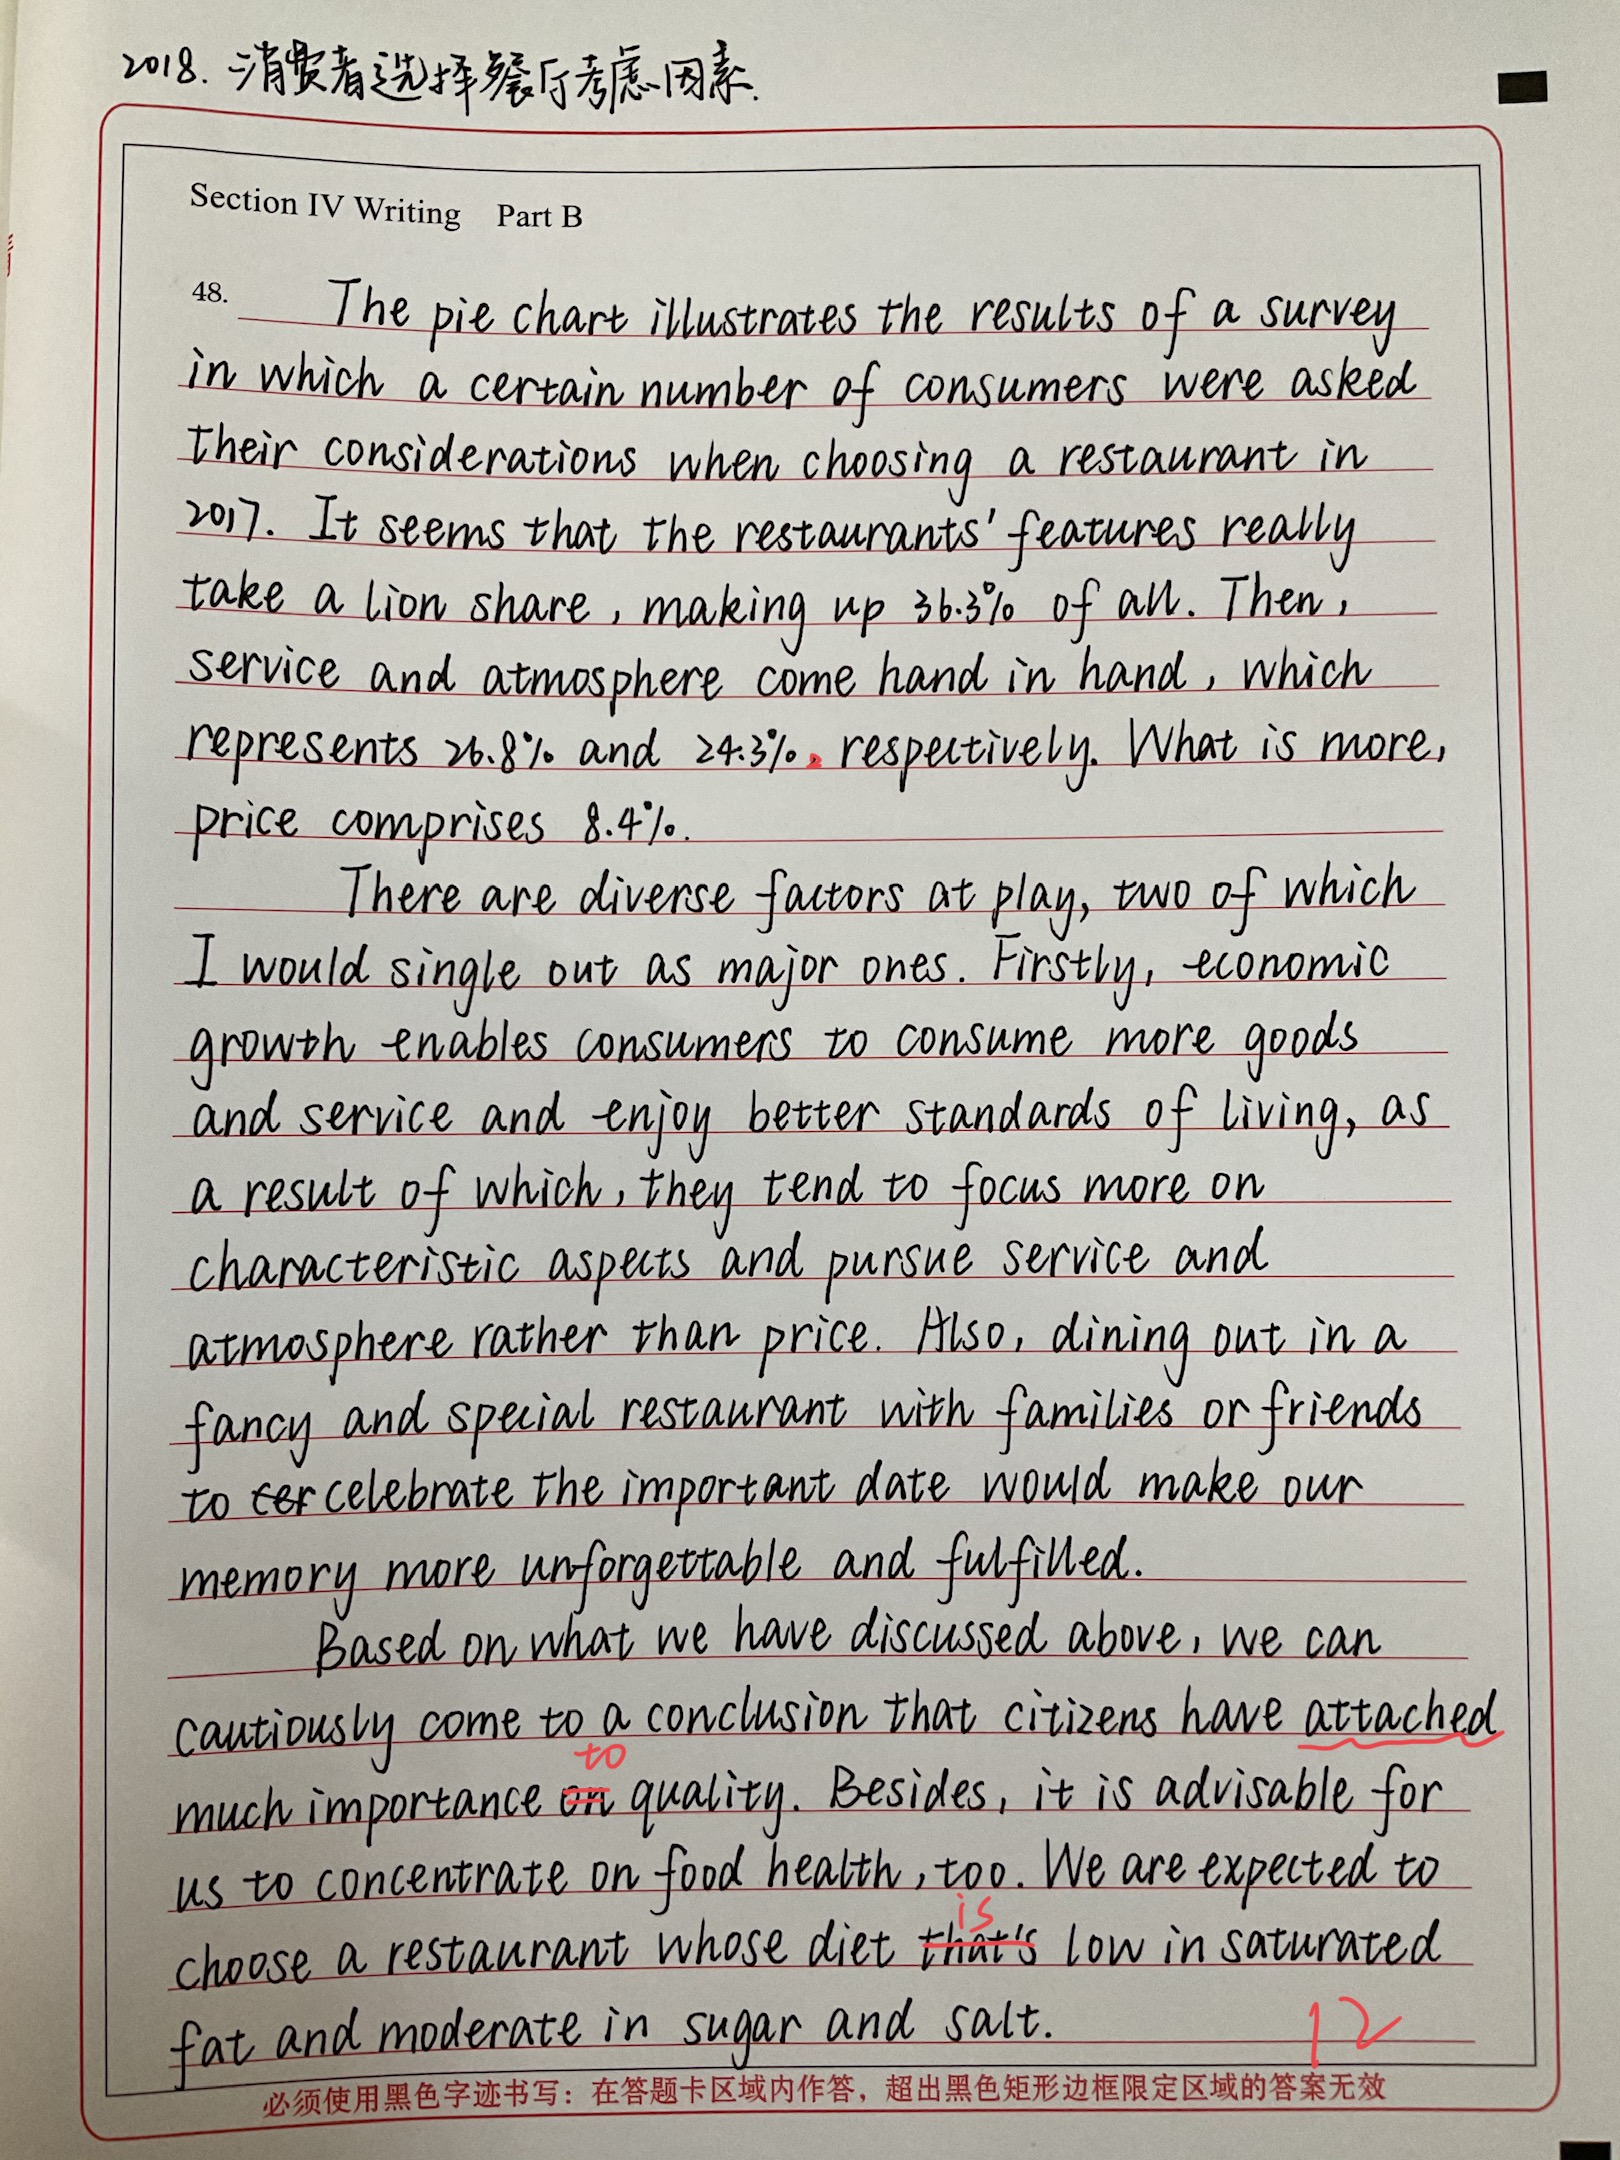 2018. 消费者选择餐厅考虑因素.
Section IV Writing Part B
48. The pie chart illustrates the results of a survey
in which a certain number of consumers were asked
their considerations when choosing a restaurant in
2017. It seems that the restaurants' features really
take a lion share, making up 36.3% of all. Then,
service and atmosphere come hand in hand, which
represents 26.8% and 24.3%, respectively. What is more,
price comprises 8.4%.
There are diverse factors at play, two of which
I would single out as major ones. Firstly, economic
growth enables consumers to consume more goods
and service and enjoy better standards of living, as
a result of which, they tend to focus more on
characteristic aspects and pursue service and
atmosphere rather than price. Also, dining out in a
fancy and special restaurant with families or friends
to cer celebrate the important date would make our
memory more unforgettable and fulfilled.
Based on what we have discussed above, we can
cautiously come to a conclusion that citizens have attached
to
much importance on quality. Besides, it is advisable for
us to concentrate on food health, too. We are expected to
is
choose a restaurant whose diet that's low in saturated
fat and moderate in sugar and salt.
12
必须使用黑色字迹书写：在答题卡区域内作答，超出黑色矩形边框限定区域的答案无效